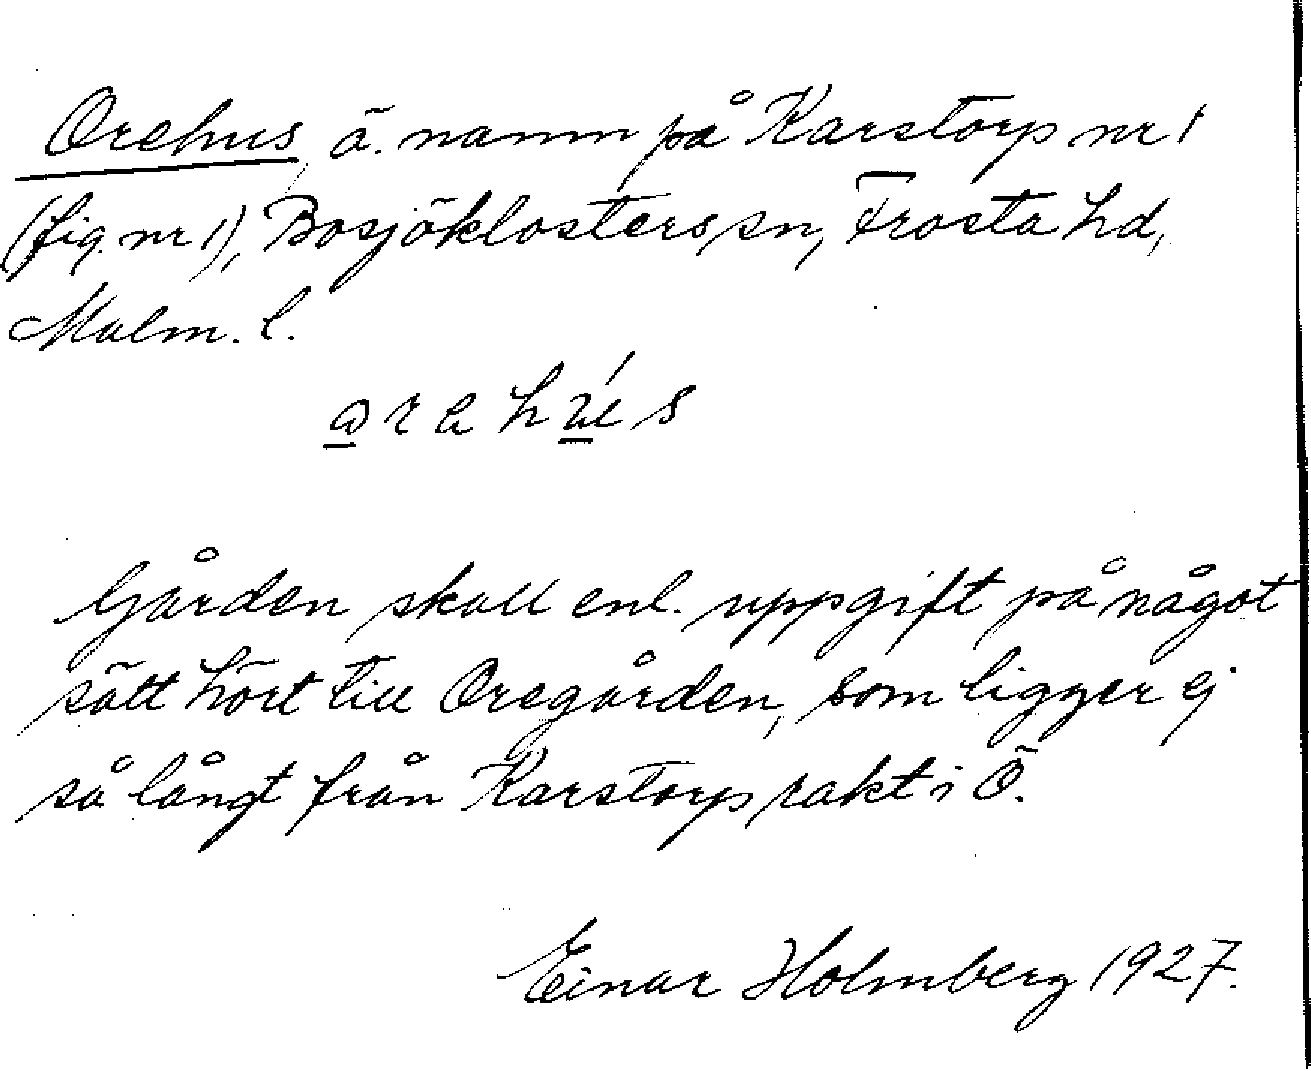 Orehus, ä. namn på Karstorp nr 1
(fig. nr 1), Bosjöklosters sn, Frosta hd,
Malm. l.
Gården skall enl. uppgift på något
sätt hört till Oregården, som ligger ej
så långt från Karstorp rakt i Ö.
Einar Holmberg 1927.